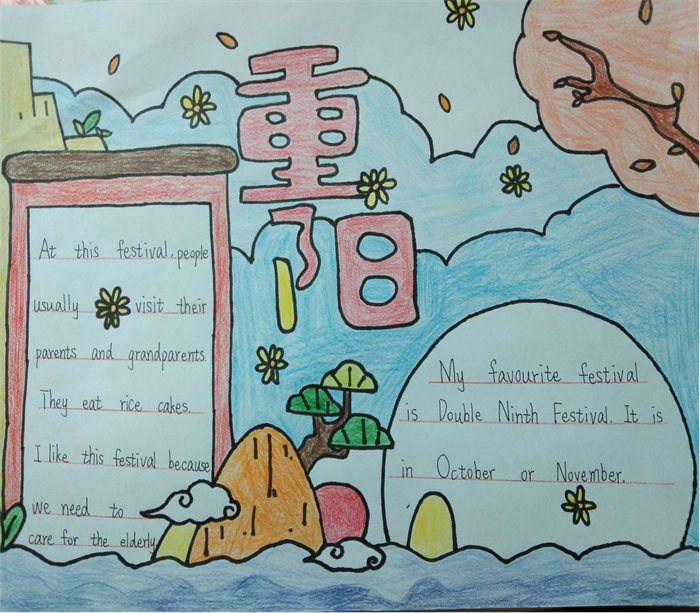 重阳
At this festival, people
usually visit their
parents and grandparents.
They eat rice cakes.
I like this festival because
we need to
care for the elderly
My favourite festival
is Double Ninth Festival. It is
in October or November.